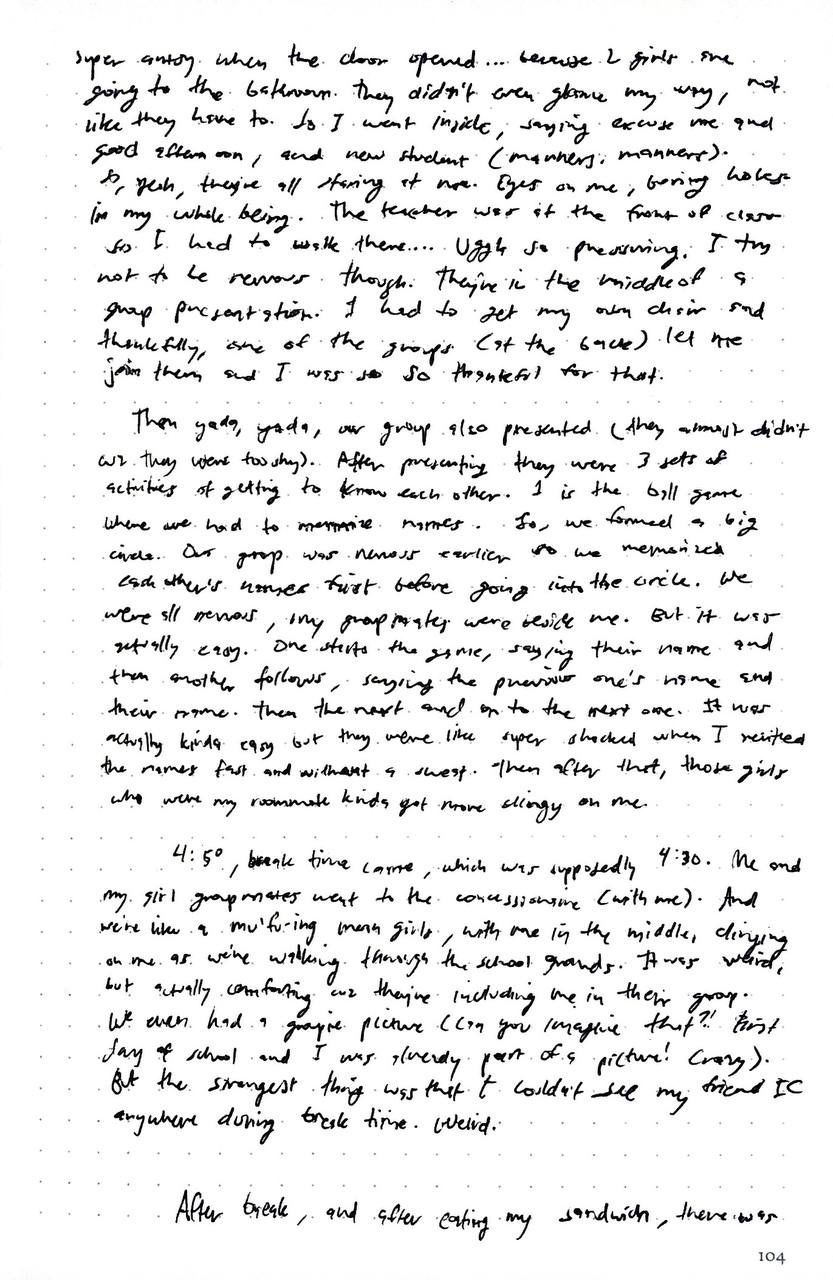 super antsy when the door opened... because 2 girls are
going to the bathroom. They didn't even glance my way, not
like they have to. So I went inside, saying excuse me and
good afternoon, and new student (manners, manners).
So, yeah, they're all staring at me. Eyes on me, boring holes
in my whole being. The teacher was at the front of class
so I had to walk there.... Uggh so pressuring. I try
not to be nervous though. They're in the middle of a
group presentation. I had to get my own chair and
thankfully, one of the groups (at the back) let me
join them and I was so so thankful for that.
Then yada, yada, our group also presented (they almost didn't
cuz they were too shy). After presenting they were 3 sets of
activities of getting to know each other. 1 is the ball game
where we had to memorize names. So, we formed a big
circle. Our group was nervous earlier so we memorized
each other's names first before going into the circle. We
were all nervous, my groupmates were beside me. But it was
actually easy. One starts the game, saying their name and
then another follows, saying the previous one's name and
their name. Then the next and on to the next one. It was
actually kinda easy but they were like super shocked when I recited
the names fast and without a sweat. Then after that, those girls
who were my roommate kinda got more clingy on me.
4:50, break time came, which was supposedly 4:30. Me and
my girl groupmates went to the concessionaire (with me). And
we're like a mu'fu'ing mean girls, with me in the middle, clinging
on me as we're walking through the school grounds. It was weird,
but actually comforting cuz they're including me in their group.
We even had a groupie picture (Can you imagine that?! First
day of school and I was already part of a picture! Crazy).
But the strangest thing was that I couldn't see my friend IC
anywhere during break time. Weird.
After break, and after eating my sandwich, there was
104